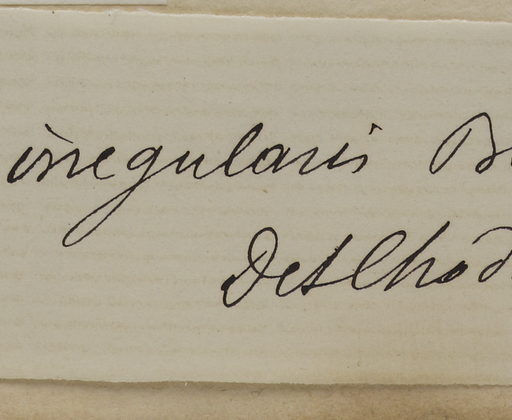 irregularis
Det Chod